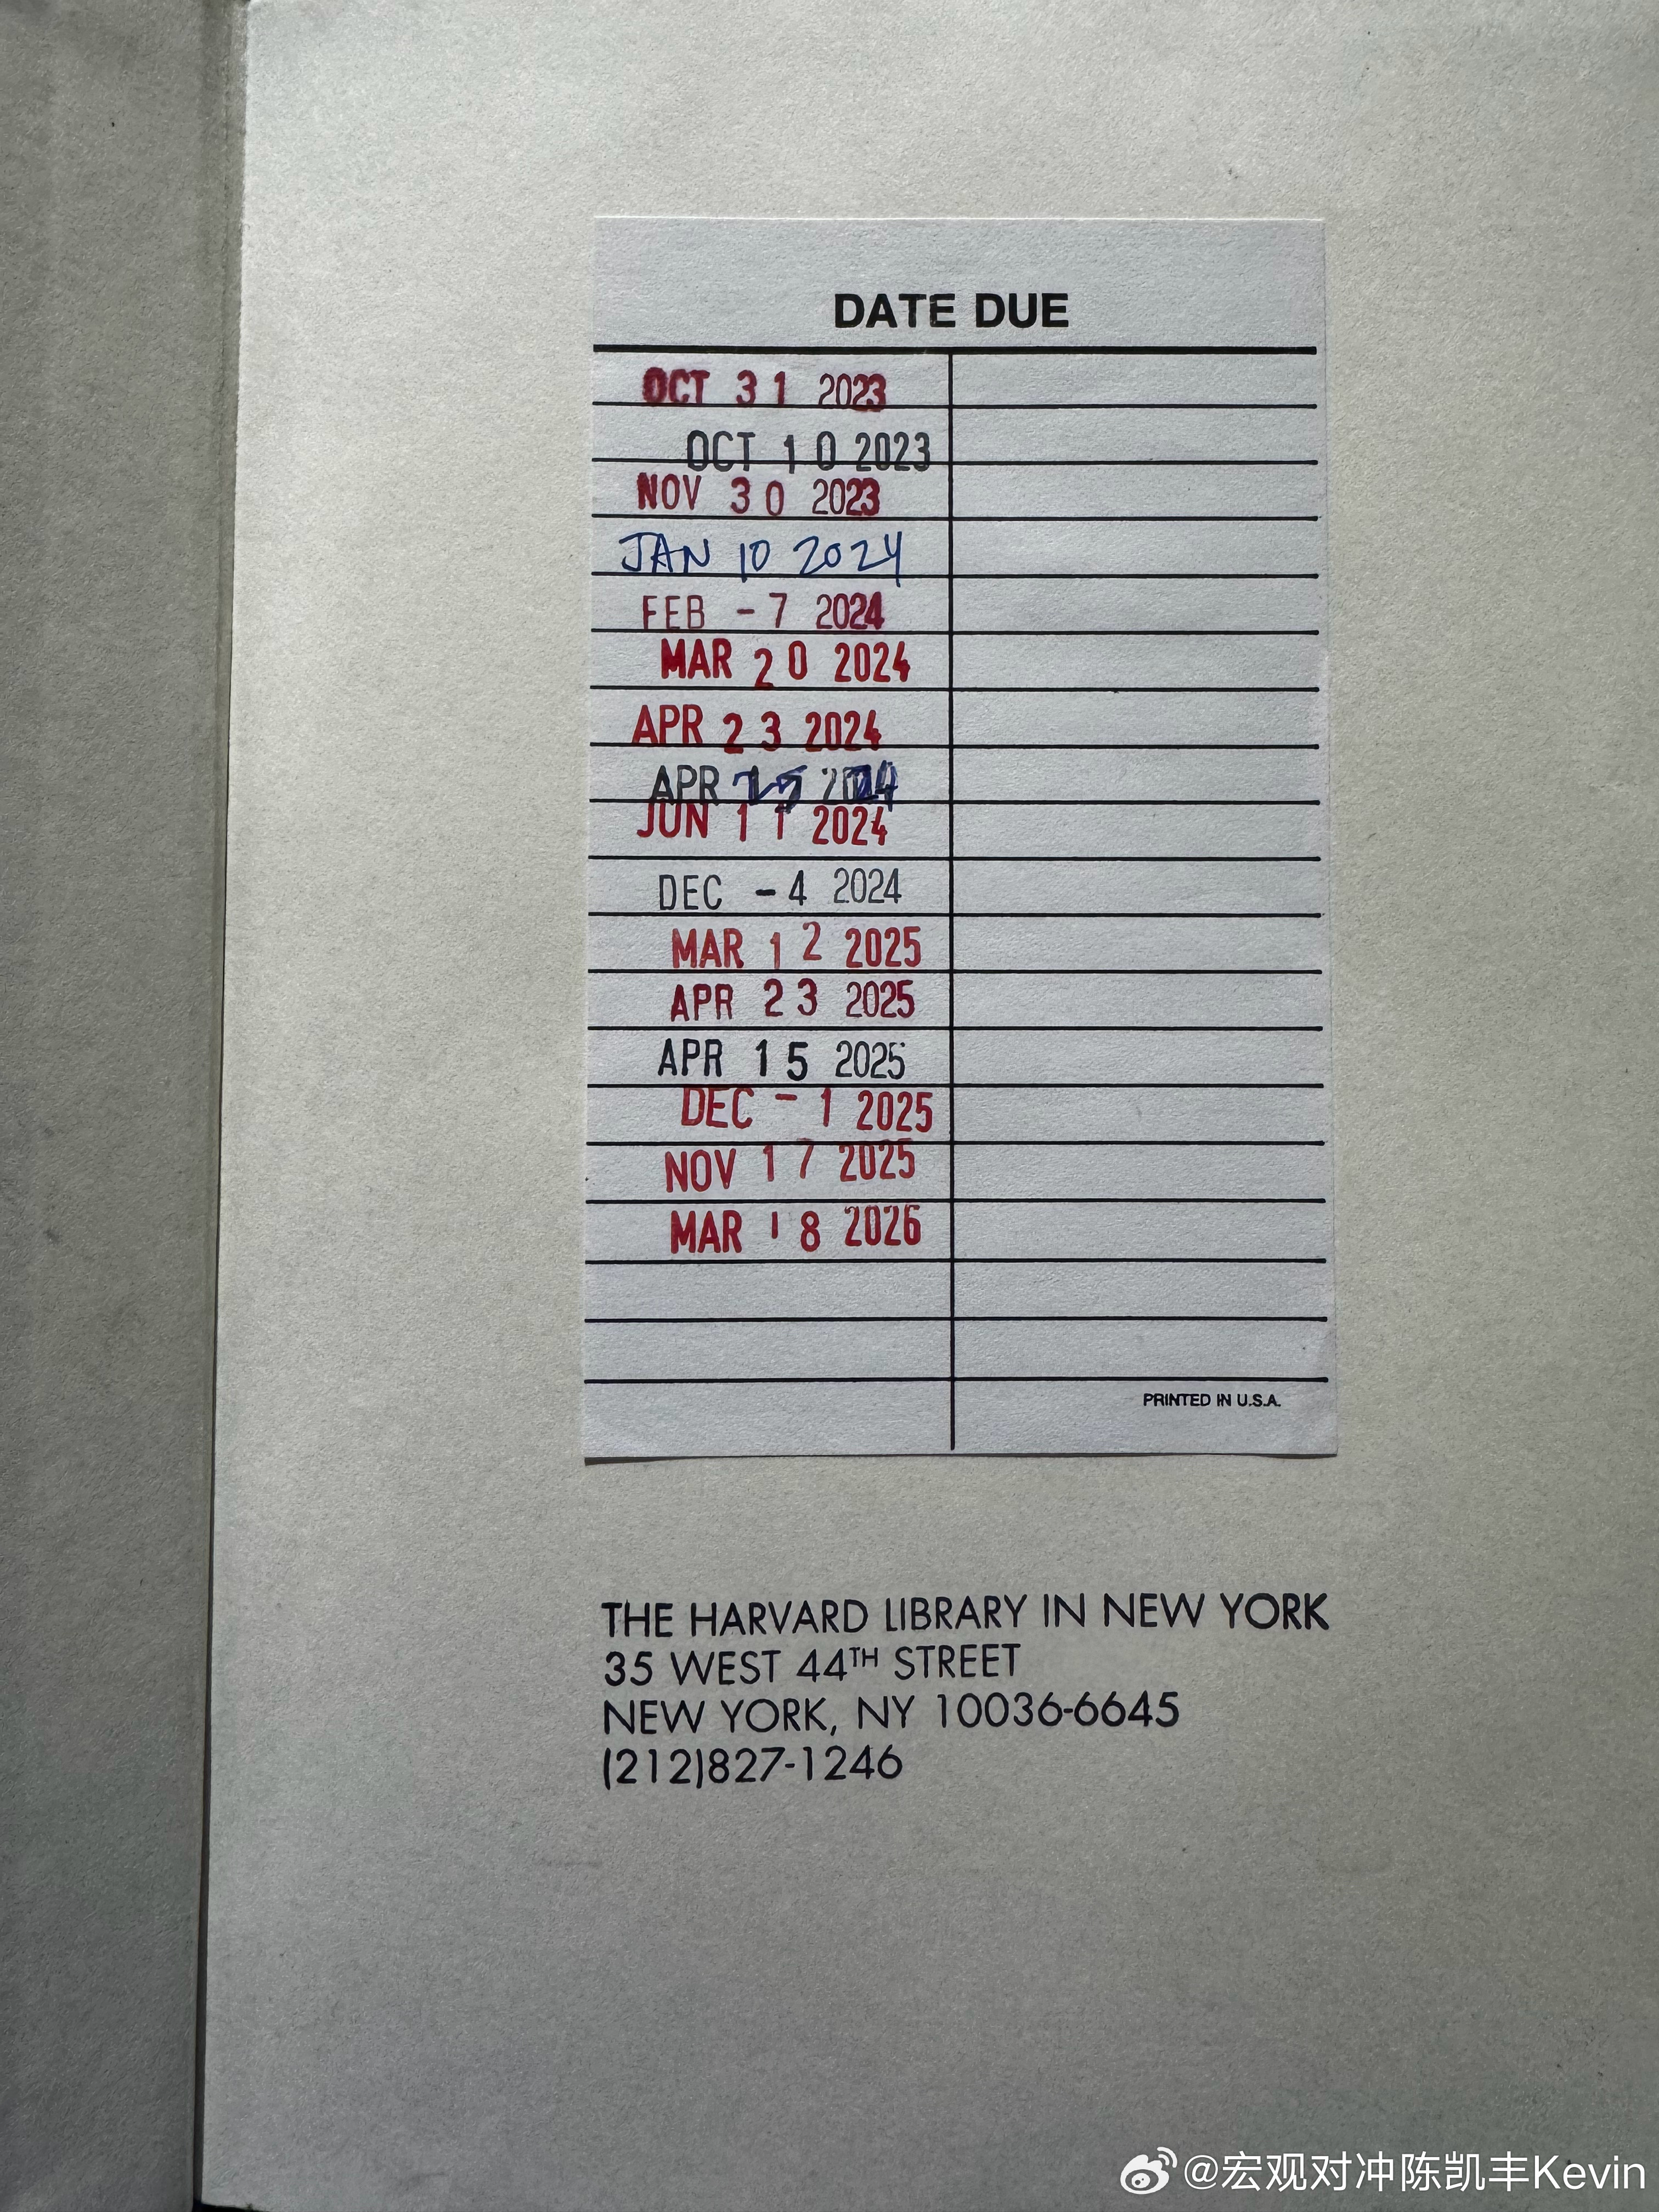 DATE DUE
OCT 31 2023
OCT 10 2023
NOV 30 2023
JAN 10 2024
FEB -7 2024
MAR 20 2024
APR 23 2024
APR 25 2024
JUN 11 2024
DEC -4 2024
MAR 12 2025
APR 23 2025
APR 15 2025
DEC -1 2025
NOV 17 2025
MAR 18 2026
PRINTED IN U.S.A.
THE HARVARD LIBRARY IN NEW YORK
35 WEST 44TH STREET
NEW YORK, NY 10036-6645
(212)827-1246
@宏观对冲陈凯丰Kevin